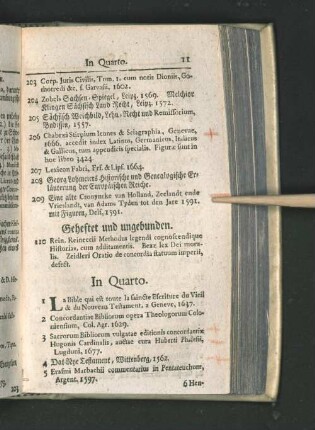 In Quarto. 11
203 Corp. Juris Civilis, Tom. 1. cum notis Dionis, Go-
thofredi &c. f. Garvasii, 1602.
204 Zobels Sachsen-Spiegel, Leipz. 1569. Melchior
Klingen Sächsisch Land Recht, Leipz. 1572.
205 Sächsisch Weichbild, Lehn-Recht und Remissorium,
Budissin, 1557.
206 Chabræi Stirpium Icones & Sciagraphia, Genevæ,
1666. accedit index Latinus, Germanicus, Italicus
& Gallicus, cum appendicis specialis. Figuræ sunt in
hoc libro 3424.
207 Lexicon Fabri, Frf. & Lipf. 1664.
208 Georg Lohmeiers Historische und Genealogische Er-
läuterung der Europäischen Reiche.
209 Eine alte Cronycke van Holland, Zeelandt ende
Vrieslandt, van Adams Tyden tot den Jare 1591.
mit Figuren, Delf, 1591.
Geheftet und ungebunden.
210 Rein. Reineccii Methodus legendi cognoscendique
Historias, cum additamentis. Bezæ Lex Dei mora-
lis. Zeidleri Oratio de
defect.
In Quarto.
1 La Bible qui est toute la saincte Escriture du Vieil
& du Nouveau Testament, a Geneve, 1637.
2 Concordantiæ Bibliorum opera Theologorum Colo-
niensium, Col. Agr. 1629.
3 Sacrorum Bibliorum vulgatae editionis concordantiæ
Hugonis Cardinalis, auctae cura Huberti Phalesii,
Lugduni, 1677.
4 Das Neue Testament, Wittenberg, 1562.
5 Erasmi Marbachii commentarius in Pentateuchum,
Argent. 1597.
6 Hen-